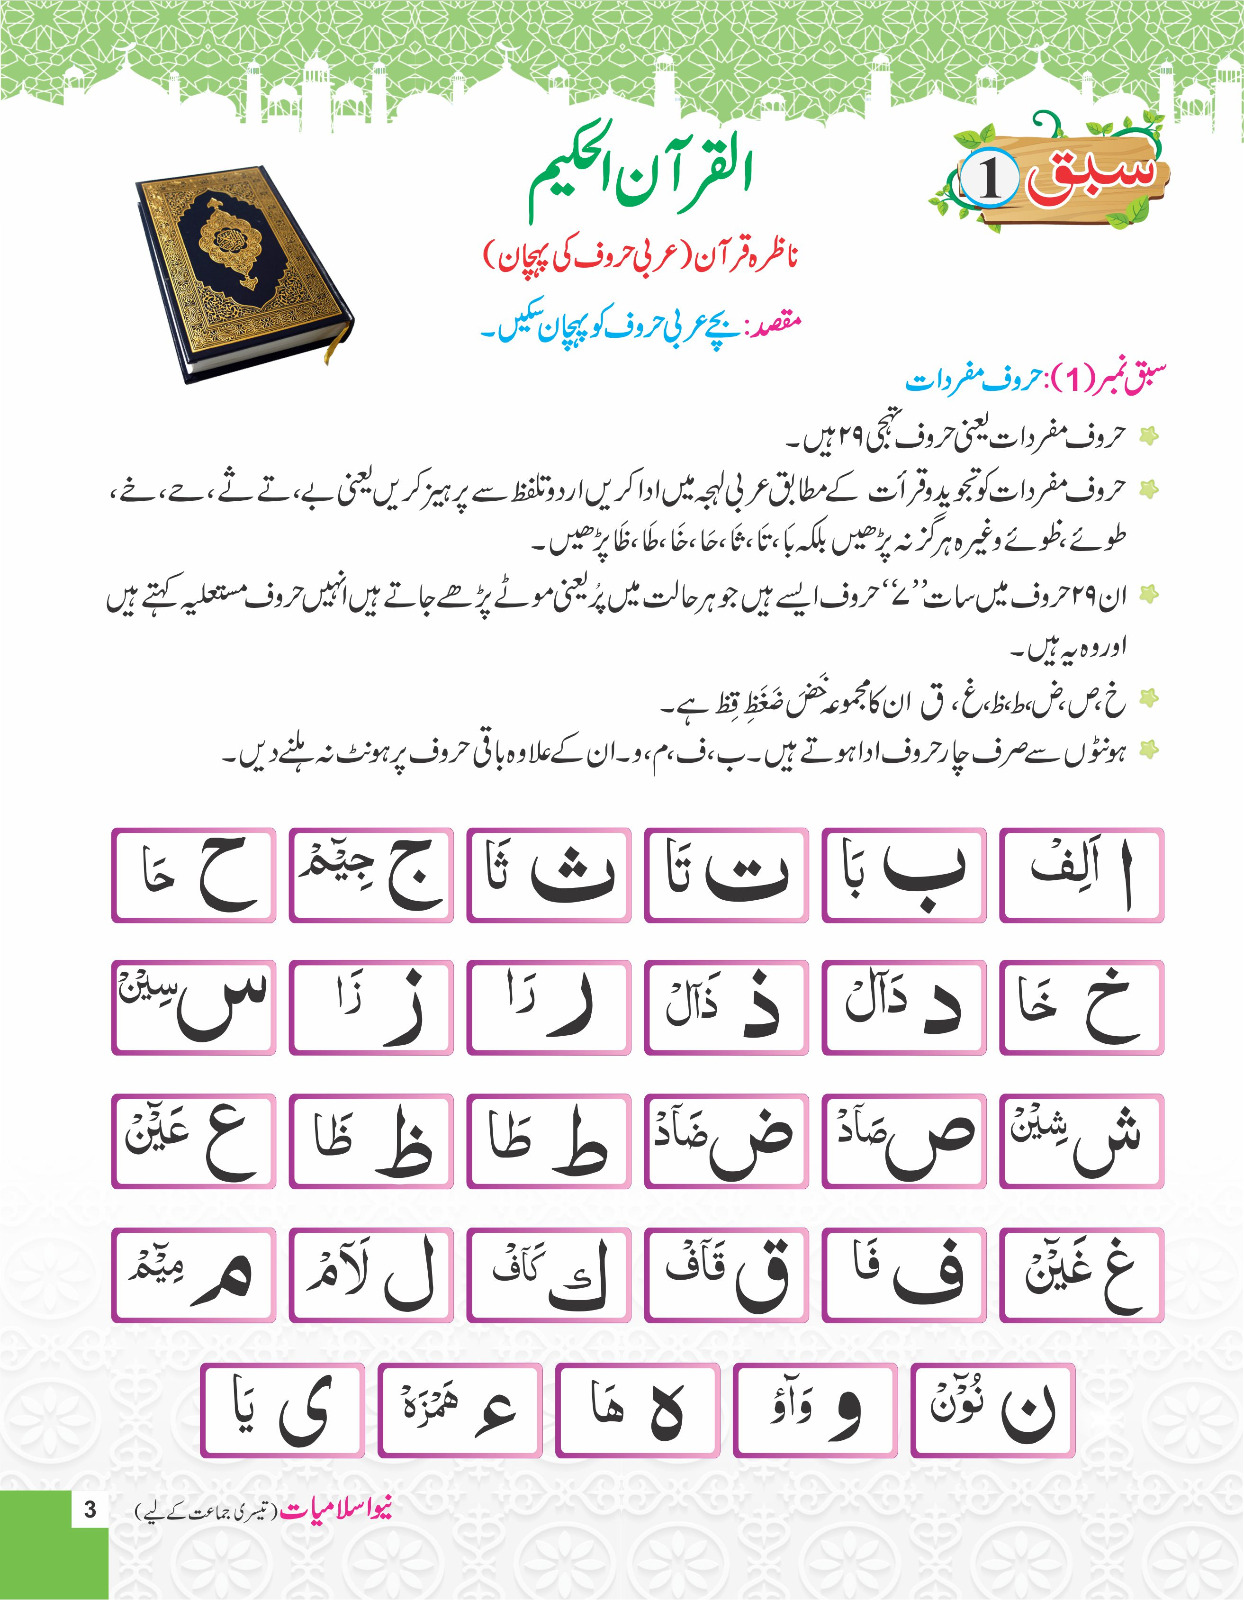 سبق 1
القرآن الحکیم
ناظرہ قرآن (عربی حروف کی پہچان)
مقصد: بچے عربی حروف کو پہچان سکیں۔
سبق نمبر (1): حروف مفردات
حروف مفردات یعنی حروف تہجی ۲۹ ہیں۔
حروف مفردات کو تجوید و قرأت کے مطابق عربی لہجہ میں ادا کریں اردو تلفظ سے پرہیز کریں یعنی بے، تے ثے، حے، خے،
طوئے، ظوئے وغیرہ ہرگز نہ پڑھیں بلکہ بَا، تَا، ثَا، حَا، خَا، طَا، ظَا پڑھیں۔
ان ۲۹ حروف میں سات ”۷“ حروف ایسے ہیں جو ہر حالت میں پُر یعنی موٹے پڑھے جاتے ہیں انہیں حروف مستعلیہ کہتے ہیں
اور وہ یہ ہیں۔
خ، ص، ض، ط، ظ، غ، ق ان کا مجموعہ خَصَّ ضَغَظٍ قِظ ہے۔
ہونٹوں سے صرف چار حروف ادا ہوتے ہیں۔ ب، ف، م، و۔ ان کے علاوہ باقی حروف پر ہونٹ نہ ہلنے دیں۔
ا اَلِفْ ب بَا ت تَا ث ثَا ج جِیْٓمْ ح حَا
خ خَا د دَآلْ ذ ذَآلْ ر رَا ز زَا س سِیْٓنْ
ش شِیْٓنْ ص صَآدْ ض ضَآدْ ط طَا ظ ظَا ع عَیْٓنْ
غ غَیْٓنْ ف فَا ق قَآفْ ك کَآفْ ل لَآمْ م مِیْٓمْ
ن نُوْٓنْ و وَآوْ ہ ھَا ء ھَمْزَہْ ی یَا
3 نیو اسلامیات (تیسری جماعت کے لیے)